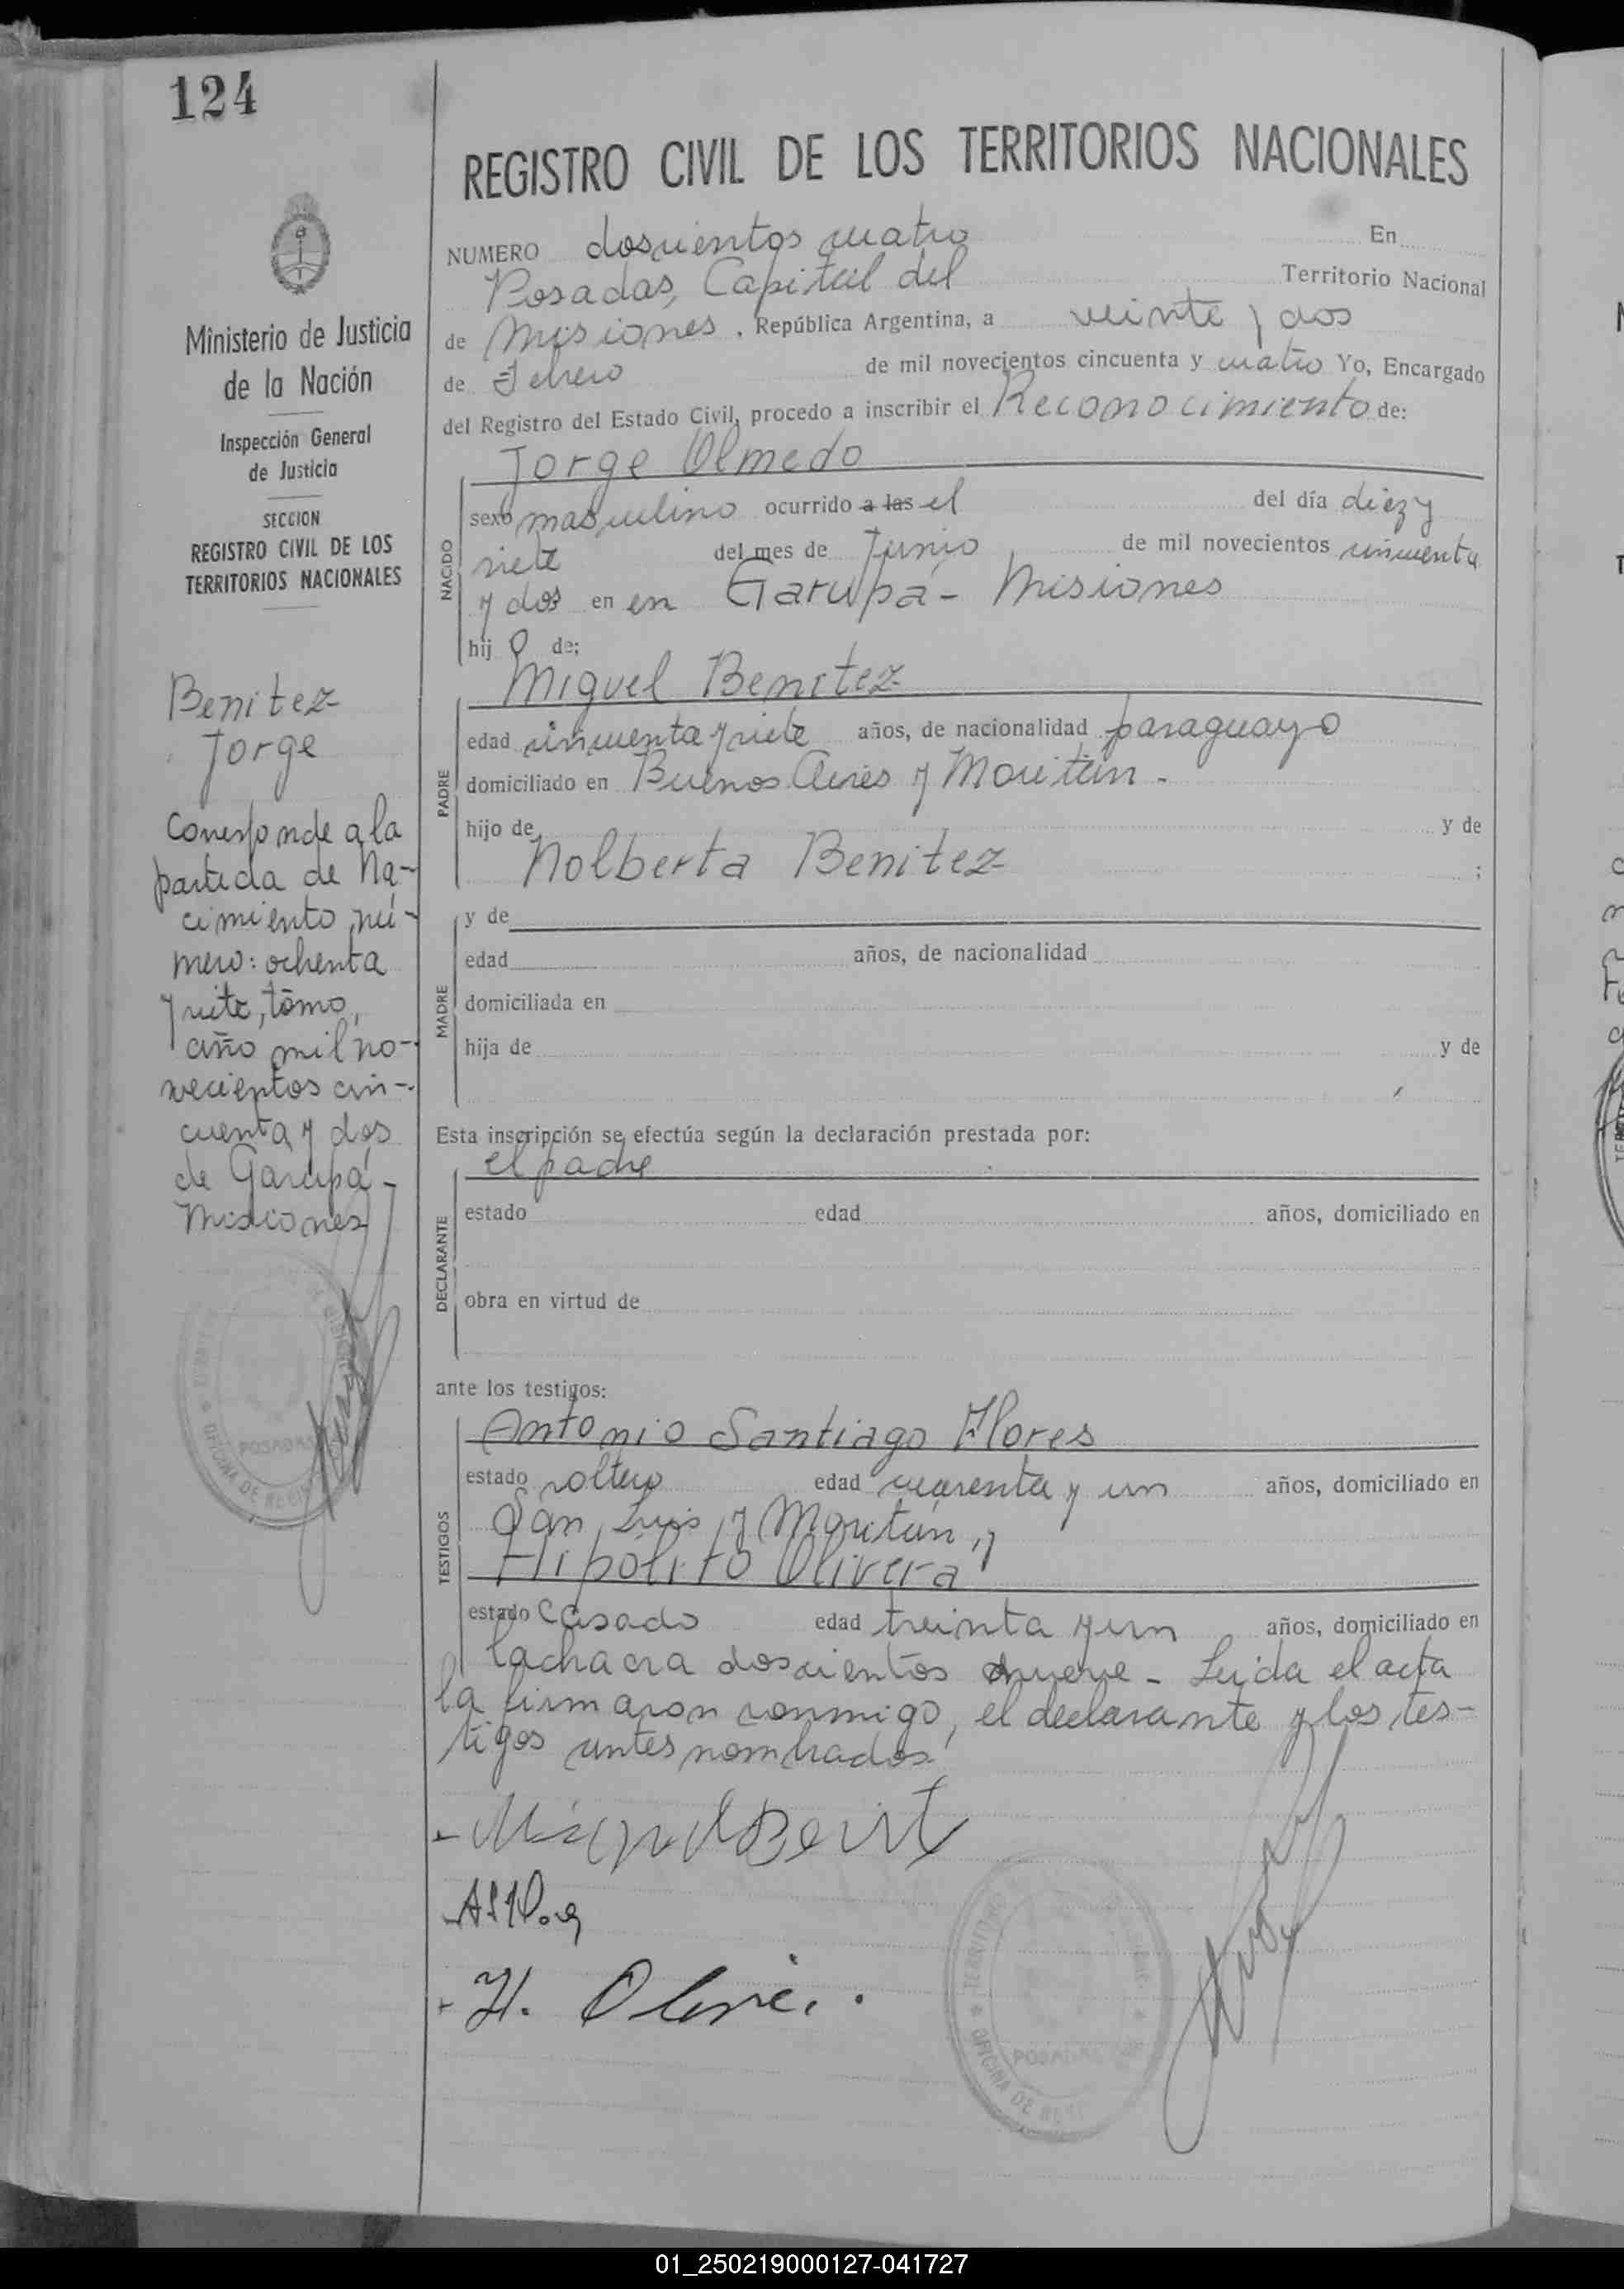 124
REGISTRO CIVIL DE LOS TERRITORIOS NACIONALES
Ministerio de Justicia
de la Nación
Inspección General
de Justicia
SECCION
REGISTRO CIVIL DE LOS
TERRITORIOS NACIONALES
Benitez
Jorge
Corresponde a la
partida de Na-
cimiento nú-
mero: ochenta
y siete, tomo,
año mil no-
vecientos cin-
cuenta y dos
de Garupá-
Misiones
POSADAS
OFICINA DE REGIS
NUMERO doscientos cuatro En
Posadas, Capital del Territorio Nacional
de Misiones. República Argentina, a veinte y dos
de Febrero de mil novecientos cincuenta y cuatro Yo, Encargado
del Registro del Estado Civil, procedo a inscribir el Reconocimiento de:
Jorge Olmedo
NACIDO
sexo masculino ocurrido a las el del día diez y
siete del mes de Junio, de mil novecientos cincuenta
y dos en en Garupá- Misiones
hij o de:
Miguel Benitez
PADRE
edad cincuenta y siete años, de nacionalidad paraguayo
domiciliado en Buenos Aires y Moritán -
hijo de y de
Nolberta Benitez ;
MADRE
y de
edad años, de nacionalidad
domiciliada en
hija de y de
Esta inscripción se efectúa según la declaración prestada por:
el padre
DECLARANTE
estado edad años, domiciliado en
obra en virtud de
ante los testigos:
TESTIGOS
Antonio Santiago Flores
estado soltero edad cuarenta y un años, domiciliado en
San Luis y Moritán, y
Hipólito Olivera
estado casado edad treinta y un años, domiciliado en
la chacra doscientos nueve - Leída el acta
la firmaron conmigo, el declarante y los tes-
tigos antes nombrados
Miguel Benit
H. Olive
TERRITORIO
POSADAS
OFICINA DE REGI
01_250219000127-041727